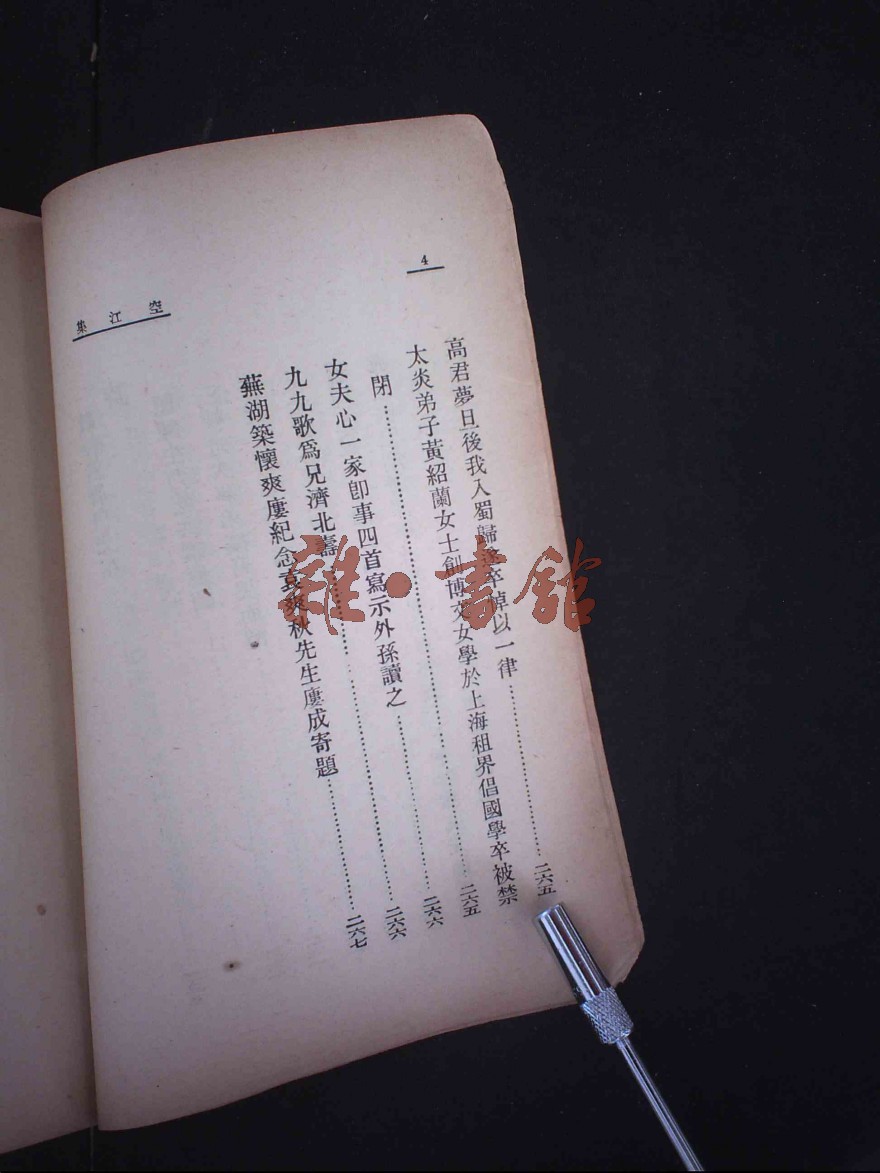 4
空江集
高君夢旦後我入蜀歸遽卒悼以一律……二六五
太炎弟子黃紹蘭女士創博文女學於上海租界倡國學卒被禁
閉……二六五
女夫心一家卽事四首寫示外孫讀之……二六六
九九歌爲兄濟北壽……二六六
蕪湖築懷爽廔紀念袁爽秋先生廔成寄題……二六七
雜·書館